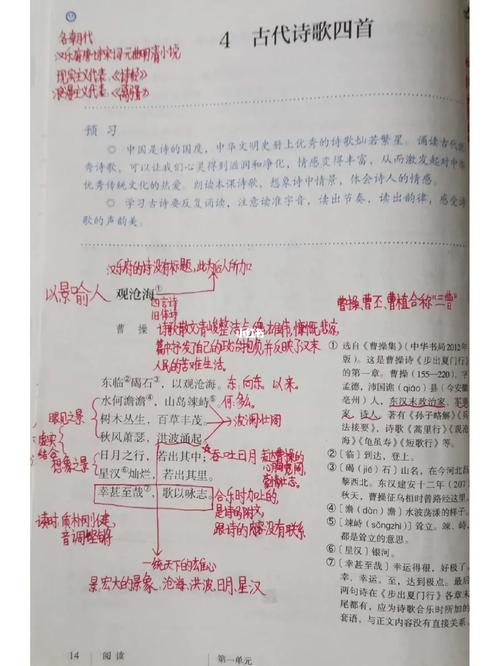 4 古代诗歌四首
各朝代
汉乐府唐诗宋词元曲明清小说
现实主义代表《诗经》
浪漫主义代表《离骚》
预习
◎ 中国是诗的国度，中华文明史册上优秀的诗歌灿若繁星。诵读古代优
秀诗歌，可以让我们心灵得到滋润和净化，情感变得丰富，从而激发起对中华
优秀传统文化的热爱。朗读本课诗歌，想象诗中情景，体会诗人的情感。
◎ 学习古诗要反复诵读，注意读准字音，读出节奏，读出韵律，感受诗
歌的声韵美。
汉乐府的诗没有标题，此为后人所加
以景喻人
观沧海①
四言诗
旧体诗
曹操
曹操、曹丕、曹植合称"三曹"
集中抒发了自己的政治抱负并反映了汉末
人民的苦难生活
东临②碣石③，以观沧海。东，向东 以，来。
水何澹澹④，山岛竦峙⑤。何，多么
树木丛生，百草丰茂。
波澜壮阔
秋风萧瑟，洪波涌起。
日月之行，若出其中；
吞吐日月
星汉⑥灿烂，若出其里。
幸甚至哉⑦，歌以咏志。
眼见之景
虚实
结合
想象之景
表达曹操的
心胸宽阔，
合乐时加上的，
是诗的附文，
跟诗的内容没有联系
读时质朴刚健，
音调铿锵
一统天下的雄心
景宏大的景象，沧海、洪波、日月、星汉
① 选自《曹操集》（中华书局2012年
版）。这是曹操诗《步出夏门行》
的第一章。曹操（155—220），字
孟德，沛国谯（qiáo）县（今安徽
亳州）人，东汉末政治家、军事
家、诗人。著有《孙子略解》《兵
法接要》，诗歌《蒿里行》《观沧
海》《龟虽寿》《短歌行》等。
②〔临〕到达，登上。
③〔碣（jié）石〕山名，在今河北昌
黎西北。东汉建安十二年（207）
秋天，曹操征乌桓时曾路经这里。
④〔澹（dàn）澹〕水波荡漾的样子。
⑤〔竦峙（sǒngzhì）〕耸立。竦、峙，
都是耸立的意思。
⑥〔星汉〕银河。
⑦〔幸甚至哉〕幸运得很，好极了。
幸，幸运。至，达到极点。最后
两句诗在《步出夏门行》各章末
尾都有，应为诗歌合乐时所加的
套语，与正文内容没有直接关系。
14 阅读
第一单元